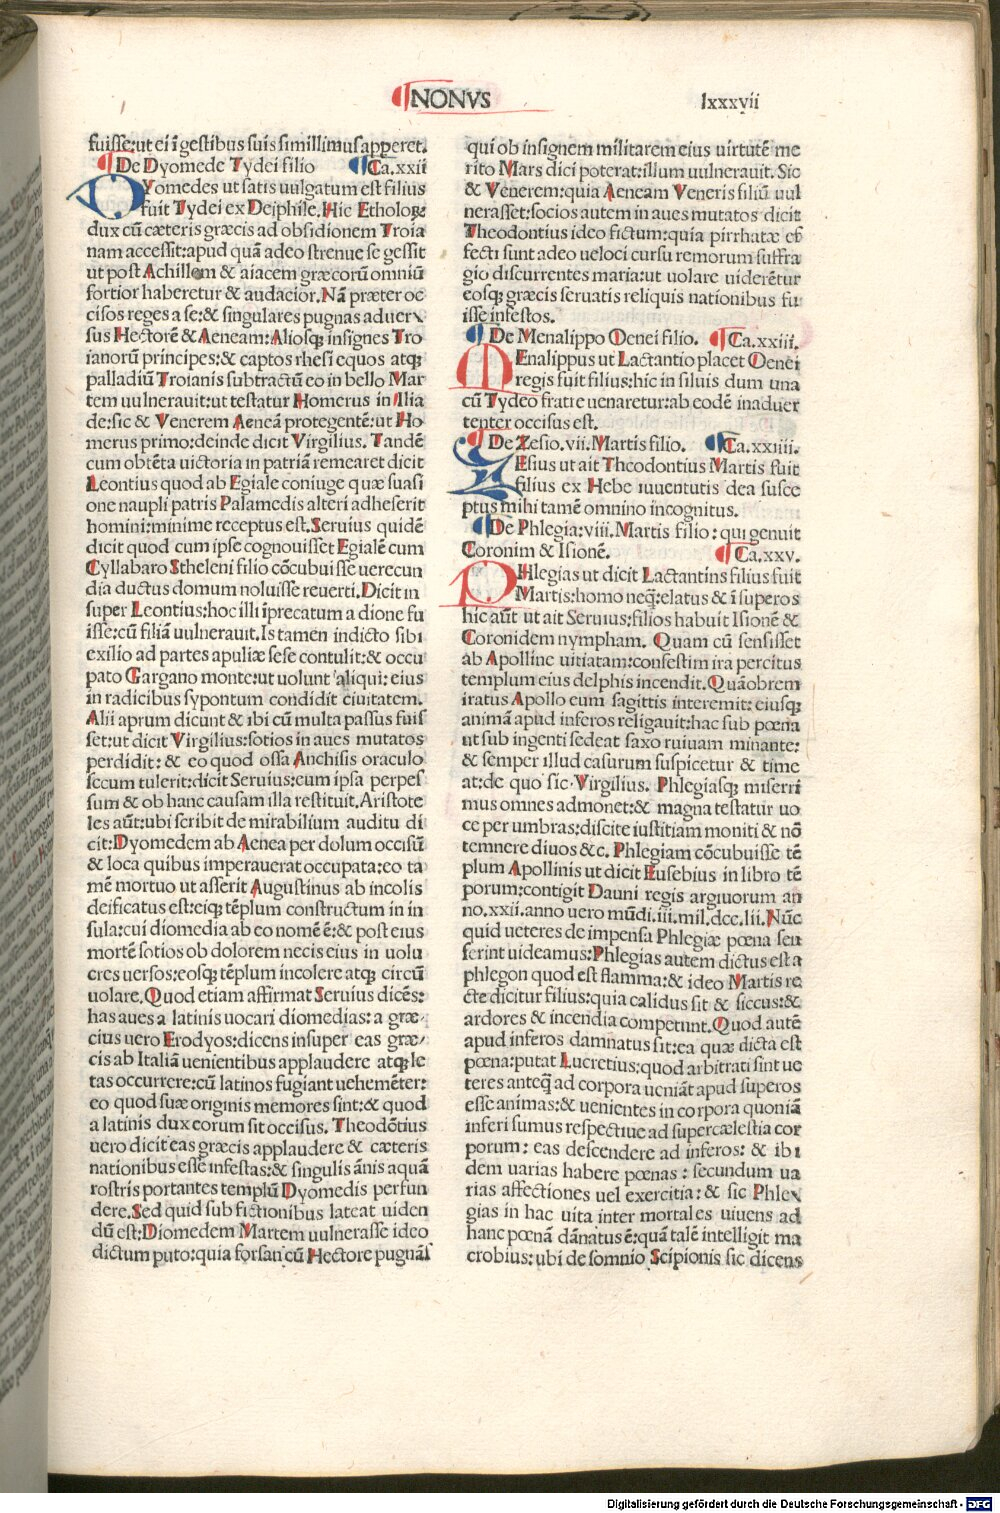 NONVS
lxxxvii
fuisse:ut ei ī gestibus suis simillimus apperet.
De Dyomede Tydei filio Ca.xxii
DYomedes ut satis uulgatum est filius
fuit Tydei ex Deiphile. Hic Etholoꝝ
dux cū cæteris græcis ad obsidionem Troia
nam accessit:apud quā adeo strenue se gessit
ut post Achillem & aiacem græcorū omniū
fortior haberetur & audacior. Nā præter oc
cisos reges a se:& singulares pugnas aduer
sus Hectorē & Aeneam:Aliosq; insignes Tro
ianorū principes:& captos rhesi equos atq;
palladiū Troianis subtractū eo in bello Mar
tem uulnerauit:ut testatur Homerus in Ilia
de:sic & Venerem Aeneā protegentē:ut Ho
merus primo:deinde dicit Virgilius. Tandē
cum obtēta uictoria in patriā remearet dicit
Leontius quod ab Egiale coniuge quæ suasi
one naupli patris Palamedis alteri adheserit
homini:minime receptus est. Seruius quidē
dicit quod cum ipse cognouisset Egialē cum
Cyllabaro Stheleni filio cōcubuisse uerecun
dia ductus domum noluisse reuerti. Dicit in
super Leontius:hoc illi īprecatum a dione fu
isse:cū filiā uulnerauit. Is tamen indicto sibi
exilio ad partes apuliæ sese contulit:& occu
pato Gargano monte:ut uolunt aliqui: eius
in radicibus sypontum condidit ciuitatem.
Alii aprum dicunt & ibi cū multa passus fuis
set:ut dicit Virgilius:sotios in aues mutatos
perdidit: & eo quod ossa Anchisis oraculo
secum tulerit:dicit Seruius:eum ipsa perpes
sum & ob hanc causam illa restituit. Aristote
les aūt:ubi scribit de mirabilium auditu di
cit:Dyomedem ab Aenea per dolum occisū
& loca quibus imperauerat occupata:eo ta
mē mortuo ut asserit Augustinus ab incolis
deificatus est:eiq; tēplum constructum in in
sula:cui diomedia ab eo nomē ē:& post eius
mortē sotios ob dolorem necis eius in uolu
cres uersos:eosq; tēplum incolere atq; circū
uolare. Quod etiam affirmat Seruius dicēs:
has aues a latinis uocari diomedias: a græ
cius uero Erodyos:dicens insuper eas græ
cis ab Italiā uenientibus applaudere atq; le
tas occurrere:cū latinos fugiant uehemēter:
eo quod suæ originis memores sint:& quod
a latinis dux eorum sit occisus. Theodōtius
uero dicit eas græcis applaudere & cæteris
nationibus esse infestas:& singulis ānis aquā
rostris portantes templū Dyomedis perfun
dere. Sed quid sub fictionibus lateat uiden
dū est:Diomedem Martem uulnerasse ideo
dictum puto:quia forsan cū Hectore pugnās
qui ob insignem militarem eius uirtutē me
rito Mars dici poterat:illum uulnerauit. Sic
& Venerem:quia Aeneam Veneris filiū uul
nerasset:socios autem in aues mutatos dicit
Theodontius ideo fictum:quia pirrhatæ ef
fecti sunt adeo ueloci cursu remorum suffra
gio discurrentes maria:ut uolare uiderētur
eosq; græcis seruatis reliquis nationibus fu
isse infestos.
De Menalippo Oenei filio. Ca.xxiii.
MEnalippus ut Lactantio placet Oenei
regis fuit filius:hic in siluis dum una
cū Tydeo fratre uenaretur:ab eodē inaduer
tenter occisus est.
De Zesio.vii.Martis filio. Ca.xxiiii.
ZEsius ut ait Theodontius Martis fuit
filius ex Hebe iuuentutis dea susce
ptus mihi tamē omnino incognitus.
De Phlegia:viii.Martis filio: qui genuit
Coronim & Isionē. Ca.xxv.
PHlegias ut dicit Lactantins filius fuit
Martis:homo neq̄:elatus & ī superos
hic aūt ut ait Seruius:filios habuit Isionē &
Coronidem nympham. Quam cū sensisset
ab Apolline uitiatam:confestim ira percitus
templum eius delphis incendit. Quāobrem
iratus Apollo eum sagittis interemit: eiusq;
animā apud inferos religauit:hac sub pœna
ut sub ingenti sedeat saxo ruinam minante:
& semper illud casurum suspicetur & time
at:de quo sic. Virgilius. Phlegiasq; miserri
mus omnes admonet:& magna testatur uo
ce per umbras:discite iustitiam moniti & nō
temnere diuos &c. Phlegiam cōcubuisse tē
plum Apollinis ut dicit Eusebius in libro tē
porum:contigit Dauni regis argiuorum an
no.xxii.anno uero mūdi.iii.mil.dcc.lii. Nūc
quid ueteres de impensa Phlegiæ pœna sen
serint uideamus:Phlegias autem dictus est a
phlegon quod est flamma:& ideo Martis re
cte dicitur filius:quia calidus sit & siccus:&
ardores & incendia competunt. Quod autē
apud inferos damnatus sit:ea quæ dicta est
pœna:putat Lucretius:quod arbitrati sint ue
teres anteq̄ ad corpora ueniāt apud superos
esse animas:& uenientes in corpora quoniā
inferi sumus respectiue ad supercælestia cor
porum: eas descendere ad inferos: & ibi
dem uarias habere pœnas: secundum ua
rias affectiones uel exercitia: & sic Phle
gias in hac uita inter mortales uiuens ad
hanc pœnā dānatus ē:quā talē intelligit ma
crobius:ubi de somnio Scipionis sic dicens
Digitalisierung gefördert durch die Deutsche Forschungsgemeinschaft - DFG